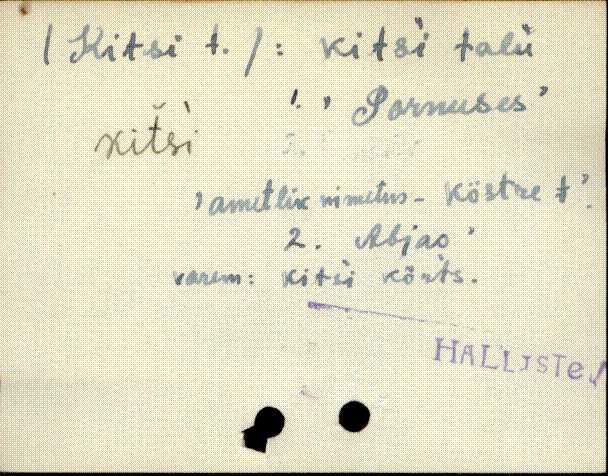 / Kitsi t. / : kitsi talu
1. „ Pornuses”
kitši
„ametlik nimetus – Köstre t”.
2. Abjao”
varem: kitsi kõrts.
HALLISTE